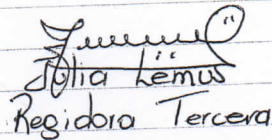 Julia Lemus
Regidora Tercera